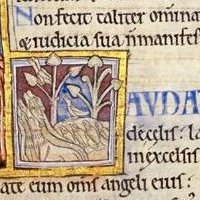 Non fecit taliter omni na
& iudicia sua n̄ manifes
LAVDA
decelis: la
inexcelsis
ate eum om̄s angeli eius: